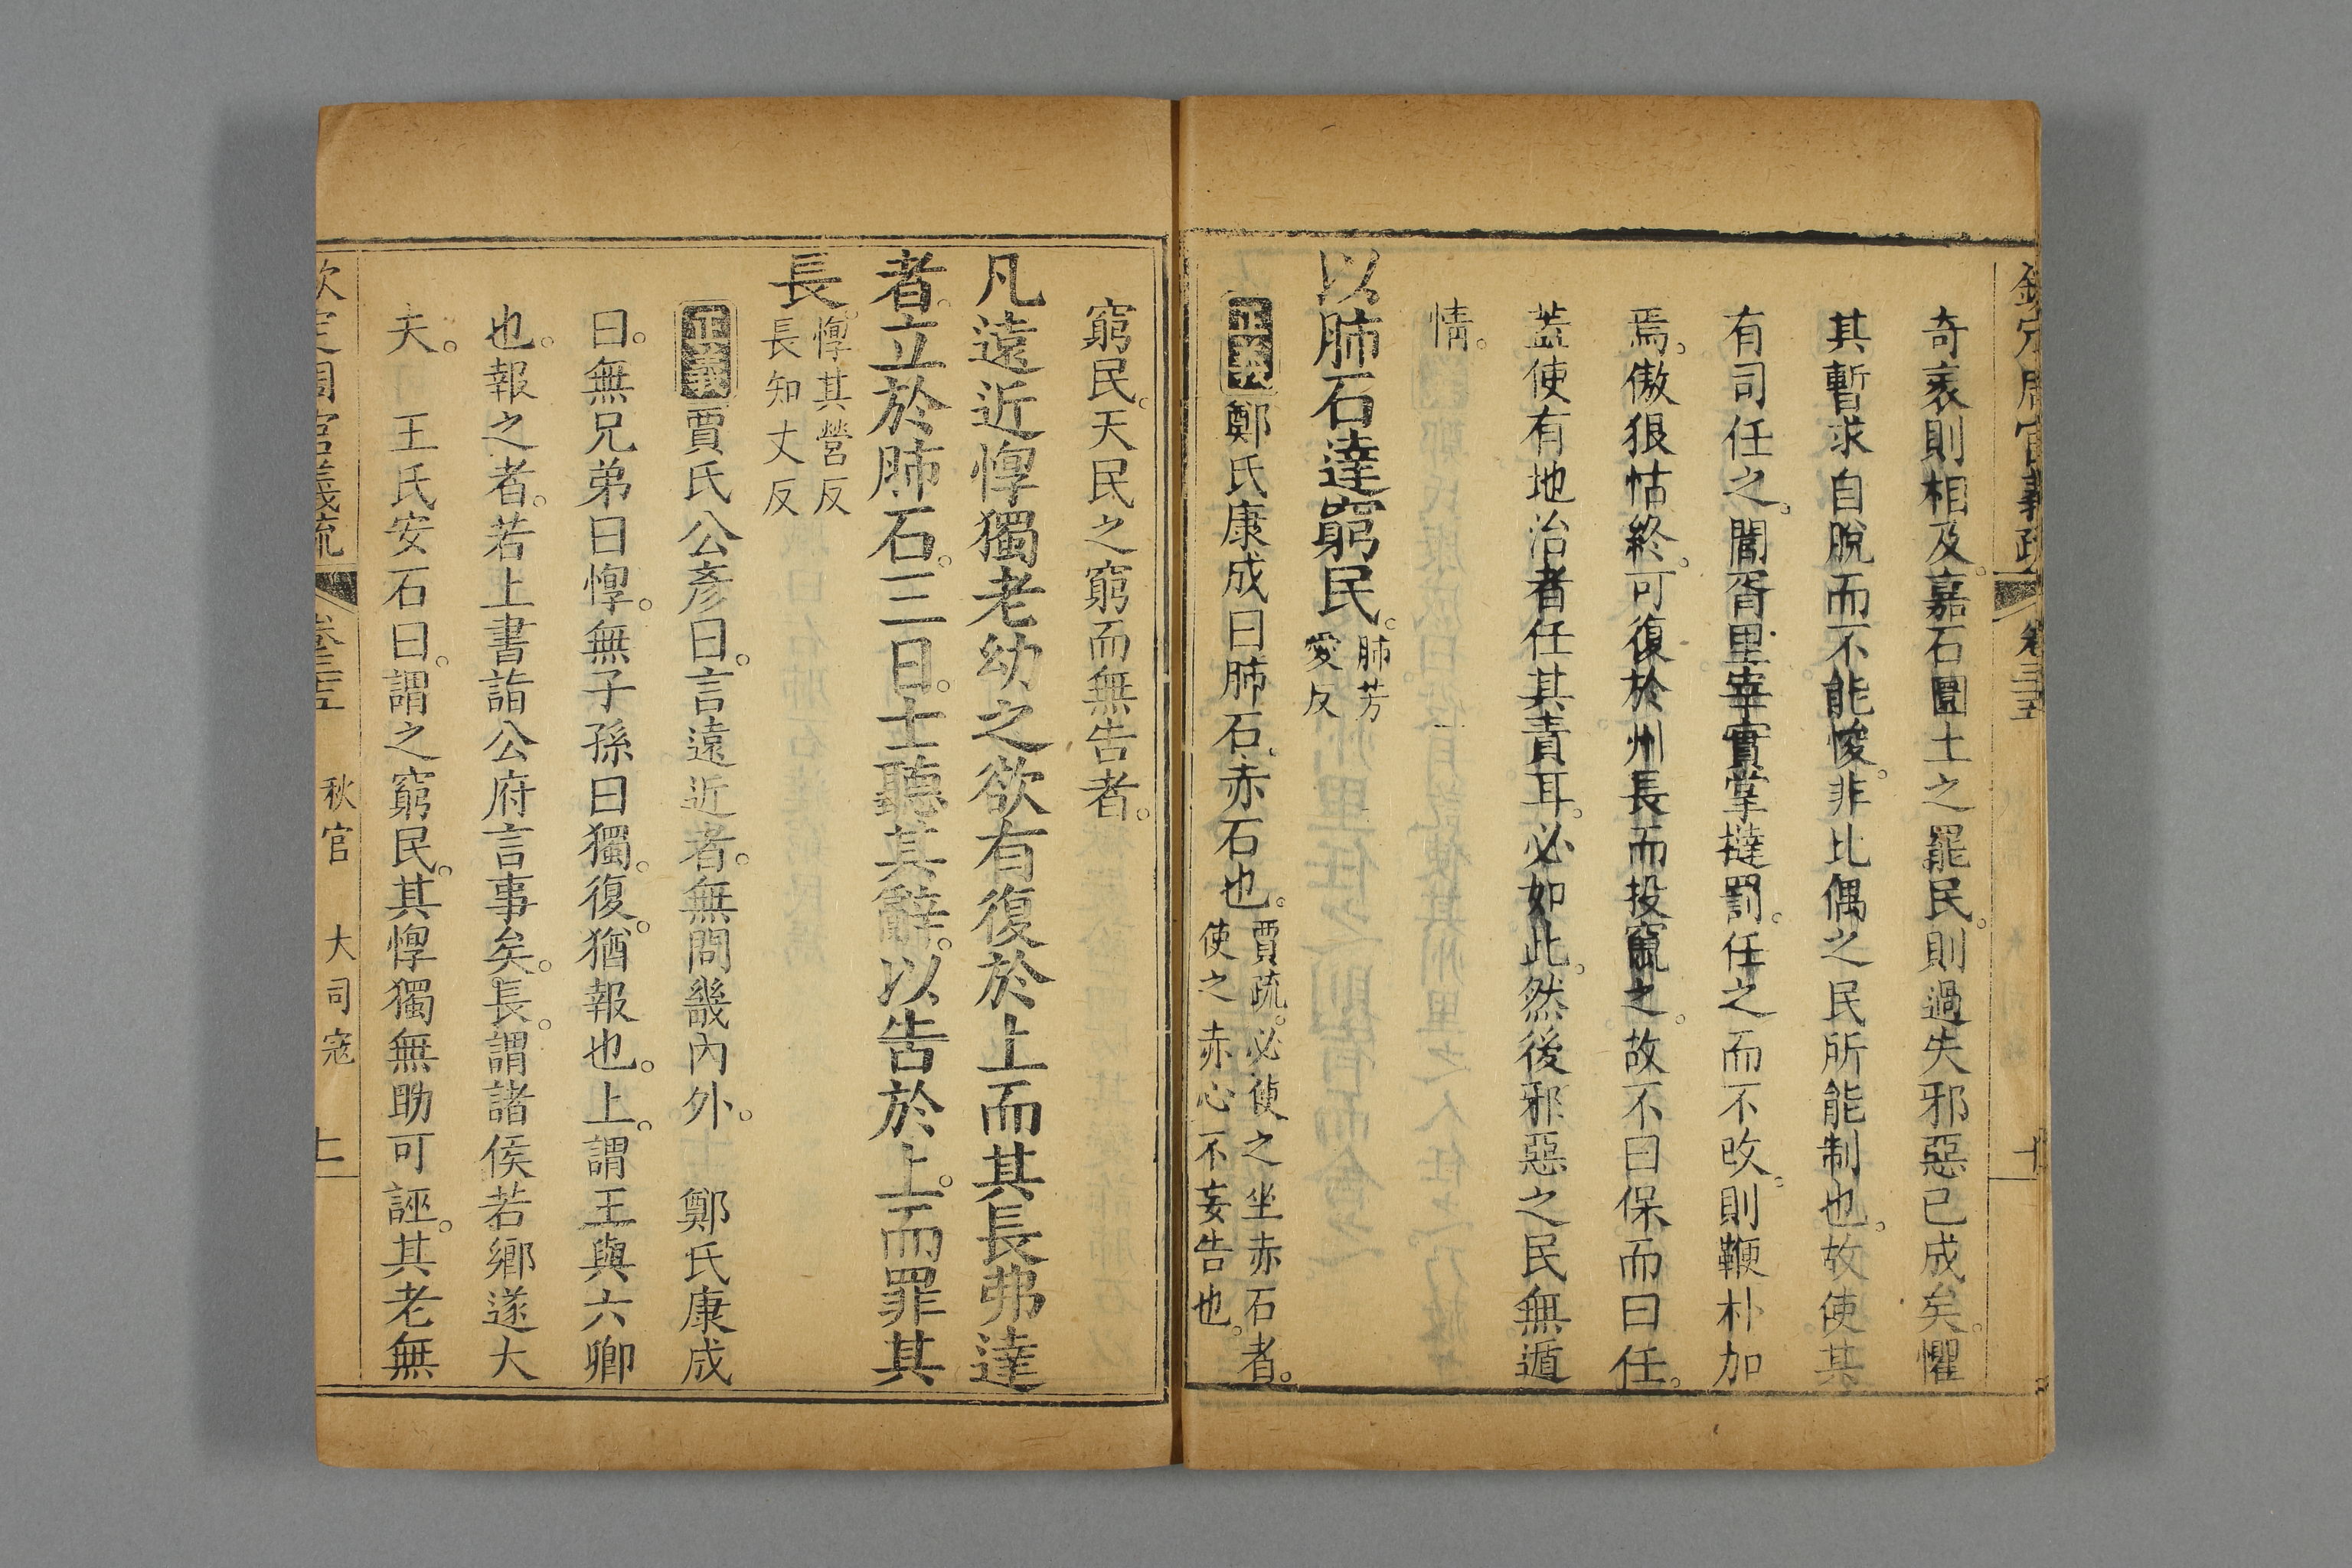 欽定周官義疏 卷三十五 十
奇衺則相及。嘉石圜土之罷民。則過失邪惡已成矣。懼
其暫求自脫而不能悛。非比偶之民所能制也。故使其
有司任之。閭胥里宰實掌撻罰。任之而不改。則鞭朴加
焉。傲狠怙終。可復於州長而投竄之。故不曰保而曰任。
葢使有地治者任其責耳。必如此。然後邪惡之民無遁
情。
以肺石達窮民。肺芳
愛反
正義鄭氏康成曰肺石、赤石也。賈疏。必使之坐赤石者。
使之赤心不妄告也。
窮民。天民之窮而無告者。
凡遠近惸獨老幼之欲有復於上而其長弗達
者。立於肺石。三日。士聽其辭。以告於上。而罪其
長。惸其營反
長知丈反
正義賈氏公彥曰。言遠近者。無問畿內外。 鄭氏康成
曰。無兄弟曰惸。無子孫曰獨。復。猶報也。上。謂王與六卿
也。報之者。若上書詣公府言事矣。長。謂諸侯若鄉遂大
夫。 王氏安石曰。謂之窮民。其惸獨無助可誣。其老無
欽定周官義疏 卷三十五 秋官 大司寇 十一